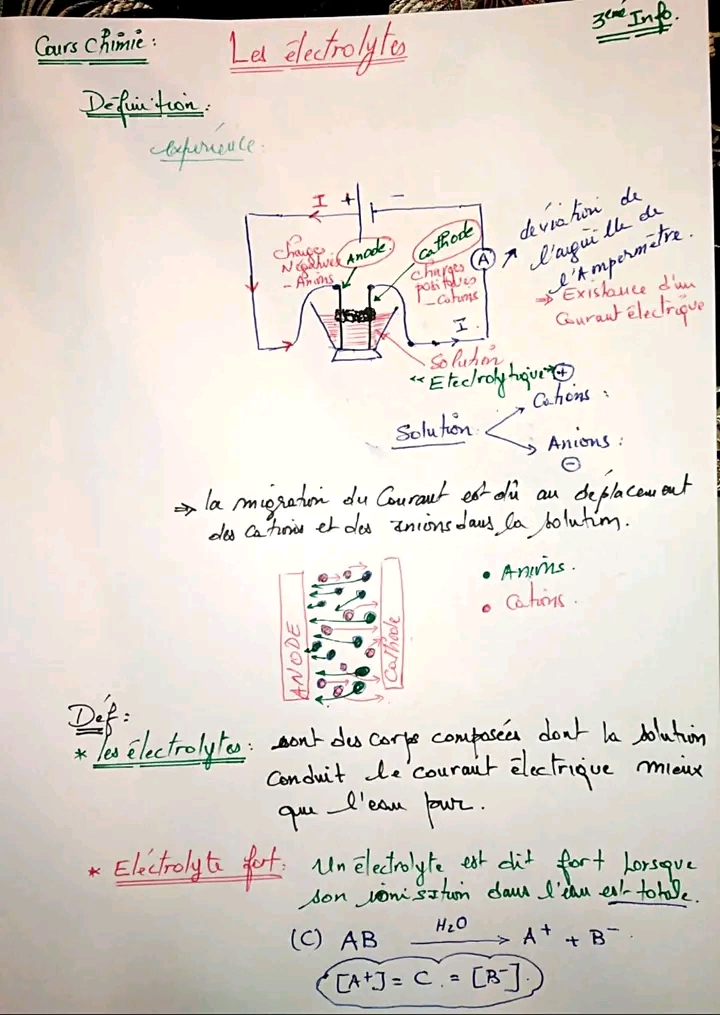 Cours Chimie :
Les électrolytes
3ème Info.
Définition :
expérience :
I + -
Charges
Négatives
- Anions
Anode
Cathode
Charges
positives
- Cations
A
déviation de
l'aiguille de
l'Ampermètre.
⇒ Existance d'un
Courant électrique
I
Solution
"Electrolytique"
+
Cations :
Solution
Anions :
-
⇒ la migration du Courant est dû au déplacement
des cations et des anions dans la solution.
ANODE
Cathode
• Anions.
• Cations.
Déf :
* les électrolytes : sont des corps composées dont la solution
conduit le courant électrique mieux
que l'eau pur.
* Electrolyte fort : Un électrolyte est dit fort Lorsque
son ionisation dans l'eau est totale.
(C) AB H₂O → A⁺ + B⁻
[A⁺] = C = [B⁻].